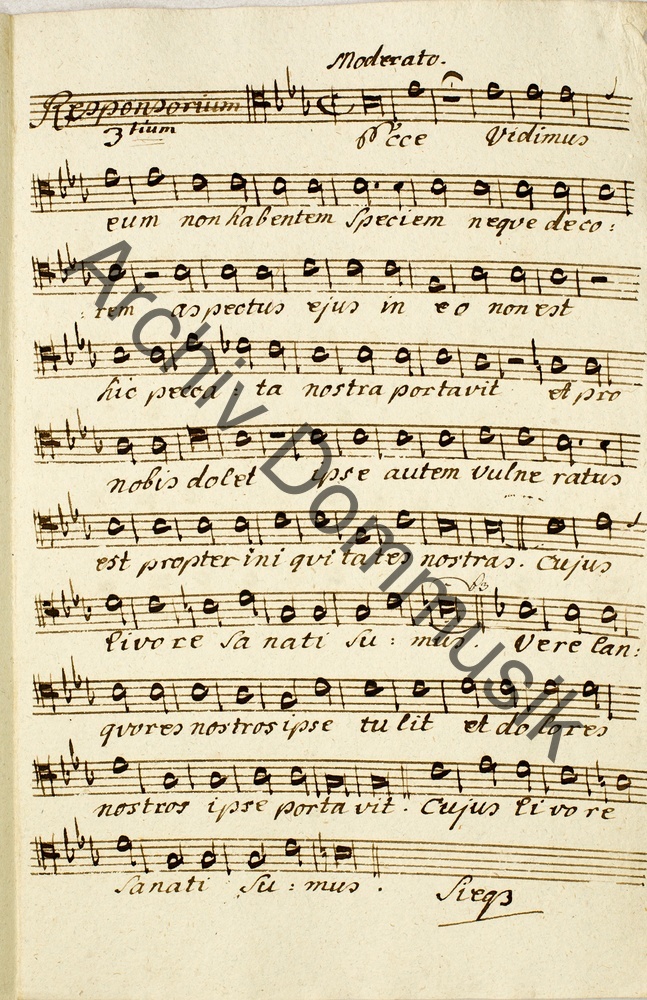 Moderato.
Responsorium
3tium
Ecce Vidimus
eum non habentem Speciem neque deco:
:rem aspectus ejus in eo non est
hic pecca: ta nostra portavit et pro
nobis dolet ipse autem Vulne ratus
est propter ini qui tates nostras. Cujus
livore Sa nati Su: mus. Vere lan:
quores nostros ipse tu lit et dolores
nostros ipse porta vit. Cujus livore
Sanati Su: mus.
Archiv Dommusik